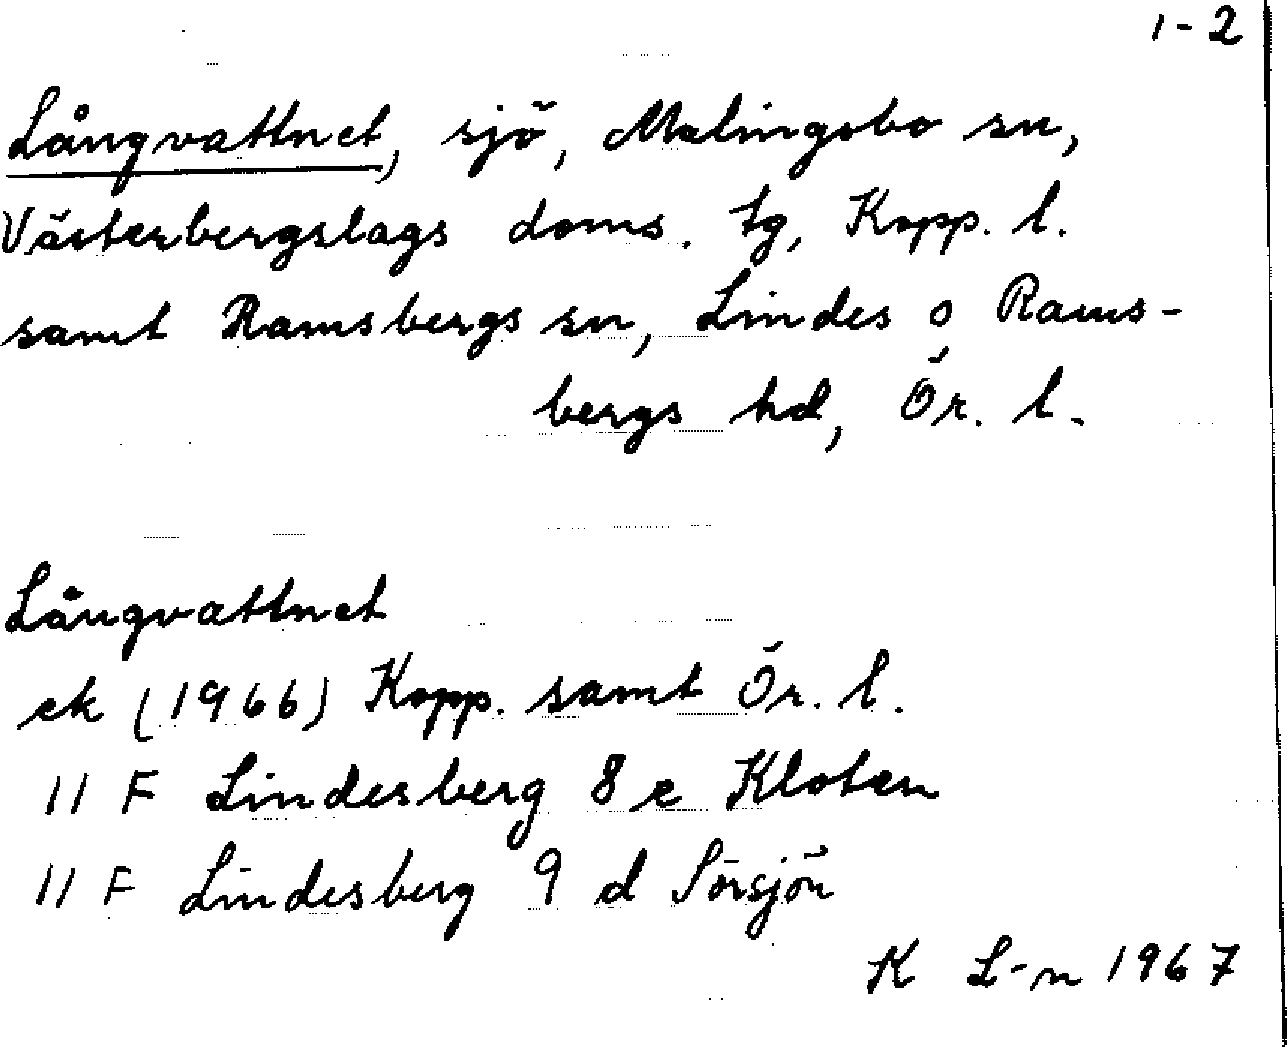 1-2
Långvattnet, sjö, Malingsbo sn,
Västerbergslags doms. tg, Kopp. l.
samt Ramsbergs sn, Lindes o Rams-
bergs hd, Ör. l.
Långvattnet
ek (1966) Kopp. samt Ör. l.
11 F Lindesberg 8 e Kloten
11 F Lindesberg 9 d Sörsjön
K L-n 1967